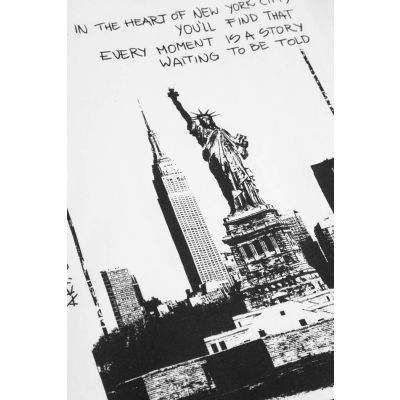 IN THE HEART OF NEW YORK CITY
YOU'LL FIND THAT
EVERY MOMENT IS A STORY
WAITING TO BE TOLD